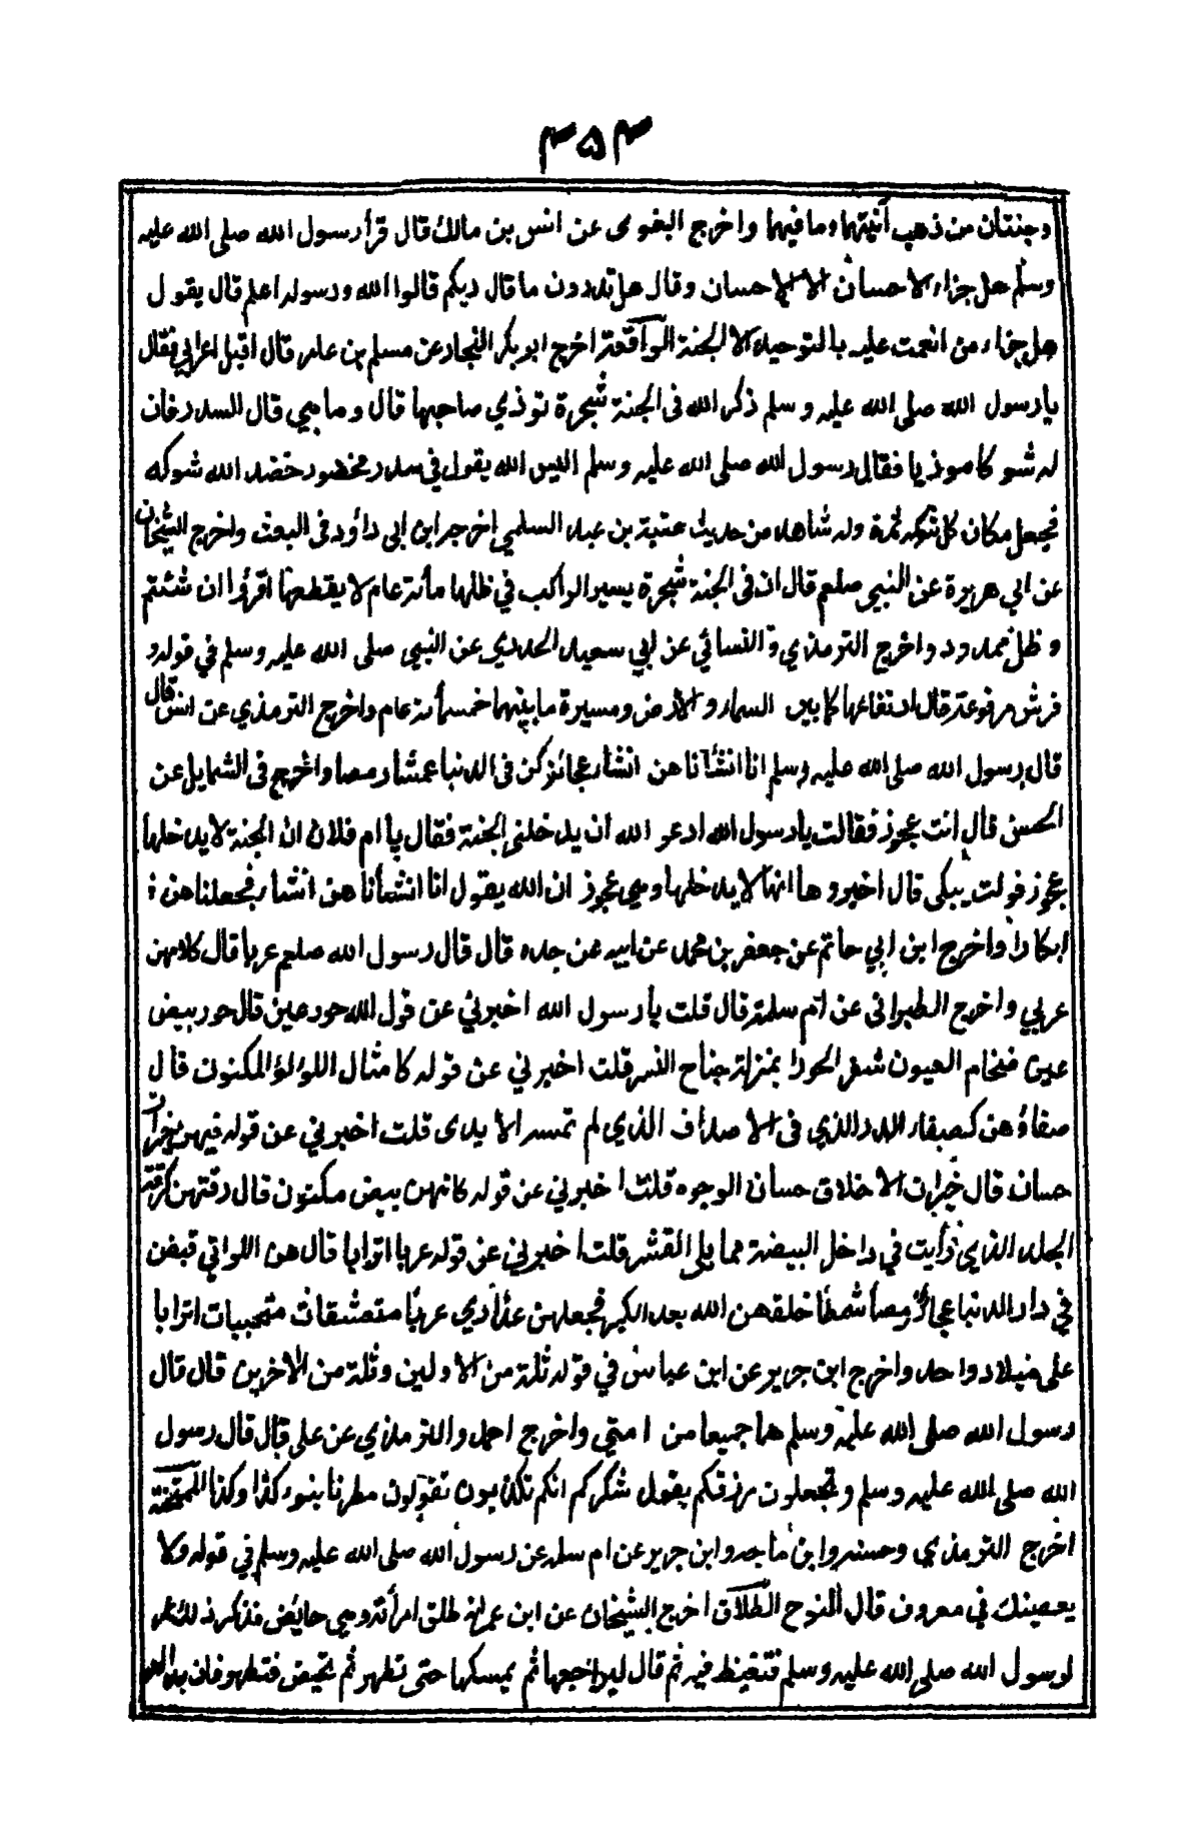 ٣٥٣
وجنتان من ذهب آنيتهما وما فيهما واخرج البغوى عن انس بن مالك قال قرأ رسول الله صلى الله عليه
وسلم هل جزاء الاحسان الا الاحسان وقال هل تدرون ما قال ربكم قالوا الله ورسوله اعلم قال يقول
هل جزاء من انعمت عليه بالتوحيد الا الجنة الواقعة اخرج ابو بكر النجاد عن مسلم بن عامر قال اقبل اعرابي فقال
يا رسول الله صلى الله عليه وسلم ذكر الله فى الجنة شجرة توذي صاحبها قال وما هي قال السدر فان
له شوكا موذيا فقال رسول الله صلى الله عليه وسلم اليس الله يقول في سدر مخضود خضد الله شوكه
فجعل مكان كل شوكة ثمرة وله شاهد من حديث عتبة بن عبد السلمي اخرجه ابن ابى داؤد فى البعث واخرج الشيخان
عن ابي هريرة عن النبى صلعم قال ان فى الجنة شجرة يسير الراكب في ظلها مأته عام لا يقطعها اقرؤا ان شئتم
و ظل ممدود واخرج الترمذي و النسائي عن ابي سعيد الخدري عن النبى صلى الله عليه وسلم في قوله و
فرش مرفوعة قال ارتفاعها كما بين السماء والارض ومسيرة ما بينهما خمسمأته عام واخرج الترمذي عن انس قال
قال رسول الله صلى الله عليه وسلم انا انشأناهن انشاء عجائز كن فى الدنيا عمشا رمصا واخرج فى الشمايل عن
الحسن قال اتت عجوز فقالت يا رسول الله ادعو الله ان يدخلنى الجنة فقال يا ام فلان ان الجنة لا يدخلها
عجوز فولت يبكى قال اخبروها انها لا يدخلها وهي عجوز ان الله يقول انا انشأناهن انشاء فجعلناهن
ابكارا واخرج ابن ابي حاتم عن جعفر بن محمد عن ابيه عن جده قال قال رسول الله صلعم عربا قال كلامهن
عربي واخرج الطبرانى عن ام سلمة قال قلت يا رسول الله اخبرني عن قول الله حور عين قال حور بيض
عين ضخام العيون شفر الحورا بمنزلة جناح النسر قلت اخبرني عن قوله كامثال اللؤلؤ المكنون قال
صفاؤهن كصفاء الدر الذي فى الاصداف الذي لم تمسه الايدى قلت اخبرني عن قوله فيهن خيرات
حسان قال خيرات الاخلاق حسان الوجوه قلت اخبرني عن قوله كانهن بيض مكنون قال رقتهن كرقة
الجلد الذي رأيت في داخل البيضة مما يلى القشر قلت اخبرني عن قوله عربا اترابا قال هن اللواتي قبضن
في دار الدنيا عجائز رمصا شمطا خلقهن الله بعد الكبر فجعلهن عذاري عربا متعشقات متحببات اترابا
على ميلاد واحد واخرج ابن جرير عن ابن عباس في قوله ثلة من الاولين وثلة من الآخرين قال قال
رسول الله صلى الله عليه وسلم هما جميعا من امتي واخرج احمد والترمذي عن على قال قال رسول
الله صلى الله عليه وسلم وتجعلون رزقكم يقول شكركم انكم تكذبون تقولون مطرنا بنوء كذا وكذا الممتحنة
اخرج الترمذي وحسنه وابن ماجه وابن جرير عن ام سلمه عن رسول الله صلى الله عليه وسلم في قوله ولا
يعصينك في معروف قال النوح الطلاق اخرج الشيخان عن ابن عمر انه طلق امرأته وهي حايض فذكر ذلك عمر
لرسول الله صلى الله عليه وسلم فتغيظ فيه ثم قال ليراجعها ثم يمسكها حتى تطهر ثم تحيض فتطهر فان بدا له